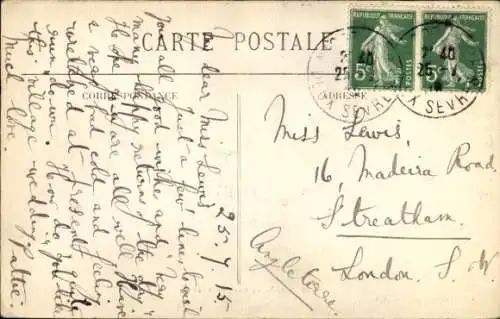 CARTE POSTALE
CORRESPONDANCE
ADRESSE
REPUBLIQUE FRANÇAISE
REPUBLIQUE FRANÇAISE
POSTES
POSTES
SEVRES
SEVRES
25. 9. 15
dear Miss Lewis,
Just a few lines to wish
you all good wishes and "many
many happy returns of the day".
Hope you are all well. Have
a bad cold and feeling
at present. How do you like
this "village wedding"
Much love.
Pattie.
Miss Lewis,
16, Madeira Road,
Streatham.
London. S. W
Angleterre.